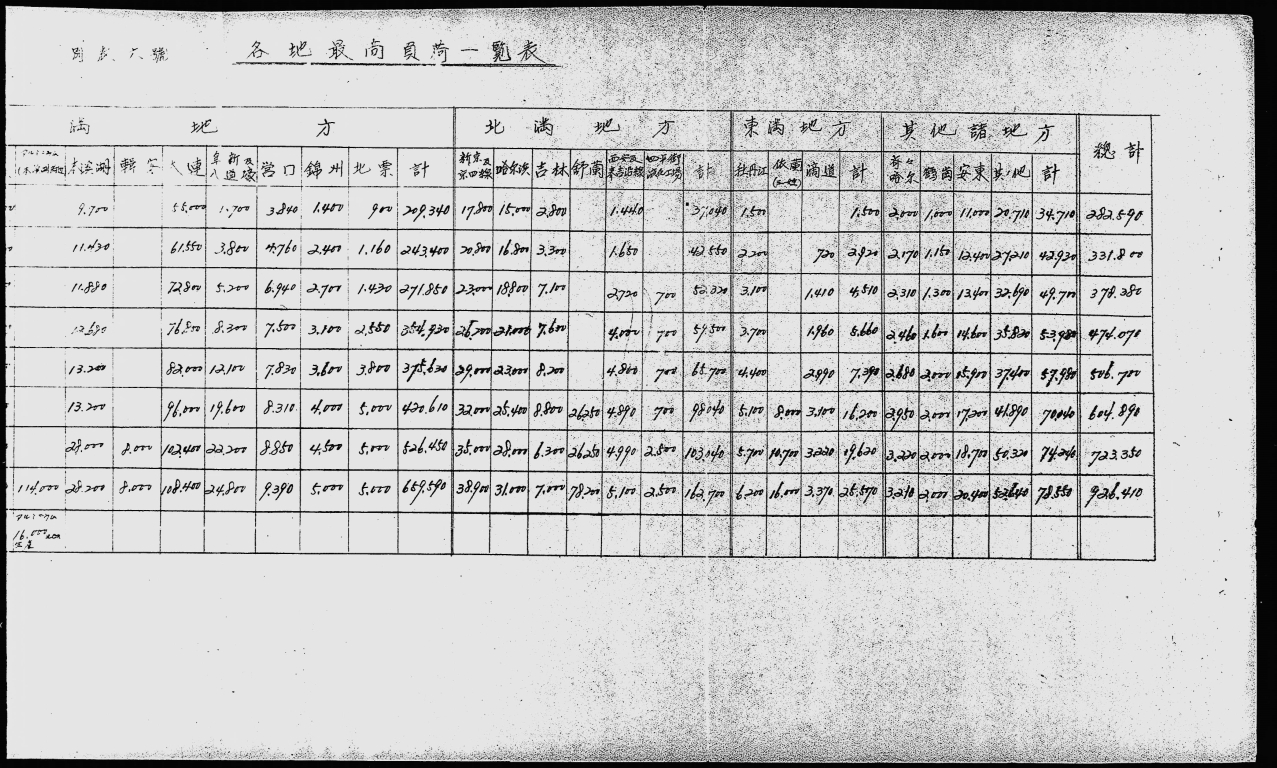 別表六號 各地最高負荷一覧表
滿 地 方 北 滿 地 方 東滿地方 其他諸地方 總計
本溪湖 大連 阜新及八道壕 營口 錦州 北票 計 新京及京四線 哈尔浜 吉林 舒蘭 計 牡丹江 依蘭 滴道 計 鶴岡 安東 其他 計
9.700 55.000 1.700 3.840 1.400 900 209.340 17.800 15.000 2.800 1.440 37.040 1.500 1.500 2.000 1.000 11.000 20.710 34.710 282.590
11.430 61.550 3.800 4.760 2.400 1.160 243.400 20.800 16.800 3.300 1.650 42.550 2.200 720 2.920 2.170 1.150 12.400 27.210 42.930 331.800
11.880 72.800 5.200 6.940 2.700 1.430 271.850 23.000 18.800 7.100 2.720 700 52.320 3.100 1.410 4.510 2.310 1.300 13.400 32.690 49.700 378.380
12.680 76.800 8.300 7.500 3.100 2.550 354.930 26.200 21.000 7.600 4.000 700 59.500 3.700 1.960 5.660 2.460 1.600 14.600 35.820 53.980 474.070
13.200 82.000 12.100 7.830 3.600 3.800 375.630 29.000 23.000 8.200 4.800 700 65.700 4.400 2.990 7.390 2.680 2.000 15.900 37.400 57.980 506.700
13.200 96.000 19.600 8.310 4.000 5.000 420.610 32.000 25.400 8.800 26.250 4.890 700 98.040 5.100 8.000 3.100 16.200 2.950 2.000 17.200 47.890 70.040 604.890
28.000 8.000 102.400 22.200 8.850 4.500 5.000 526.450 35.000 28.000 6.300 26.250 4.990 2.500 103.040 5.700 10.700 3.220 19.620 3.220 2.000 18.700 50.320 74.240 723.350
114.000 28.200 8.000 108.400 24.800 9.390 5.000 5.000 659.590 38.900 31.000 7.000 78.200 5.100 2.500 162.700 6.200 16.000 3.370 25.570 3.210 2.000 20.400 52.640 78.550 926.410
16.000